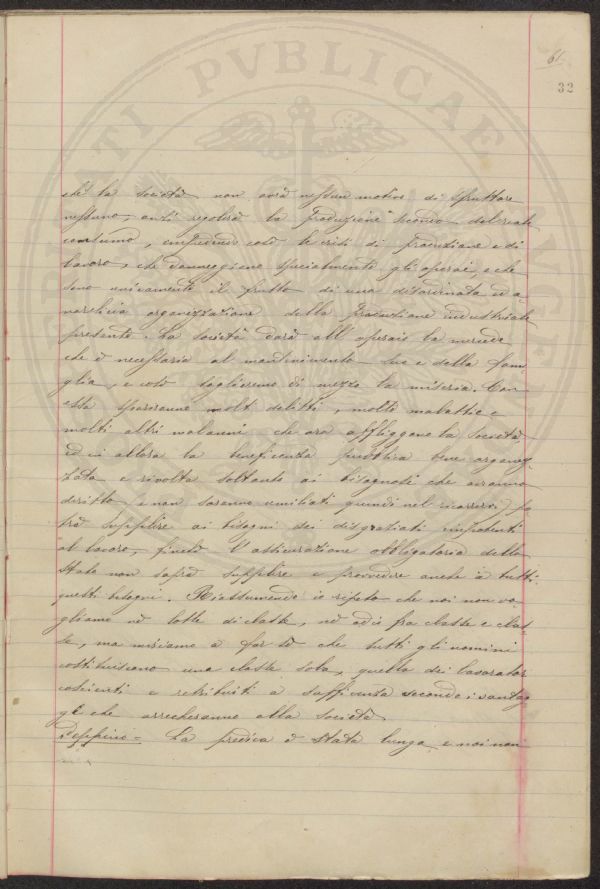 61
32
chè la società non avrà nessun motivo di sfruttare
nessuno, anzi regolerà la Produzione secondo del reale
consumo, impedendo così le crisi di Produzione e di
lavoro, che danneggiano specialmente gli operai, e che
sono unicamente il frutto di una disordinata ed a-
narchica organizzazione della Produzione industriale
presente. La società darà all'operaio la mercede
che è necessaria al mantenimento suo e della fami
glia, e così toglieremo di mezzo la miseria. Con
essa spariranno molti delitti, molte malattie e
molti altri malanni che ora affliggono la società
ed in allora la beneficenza pubblica bene organiz
zata e rivolta soltanto ai bisognosi che avranno
diritto, e non saranno umiliati quindi nel ricorrervi, po
trà supplire ai bisogni dei disgraziati impotenti
al lavoro, finchè l'assicurazione obbligatoria dello
Stato non saprà supplire e provvedere anche a tutti
questi bisogni. Riassumendo io ripeto che noi non vo
gliamo nè lotte di classe, nè odio fra classe e clas-
se, ma miriamo a far sì che tutti gli uomini
costituiscano una classe sola, quella dei lavorator
coscienti e retribuiti a sufficienza secondo i vantag
gi che arrecheranno alla società
Peppino = La predica è stata lunga, e noi non
PVBLICAE